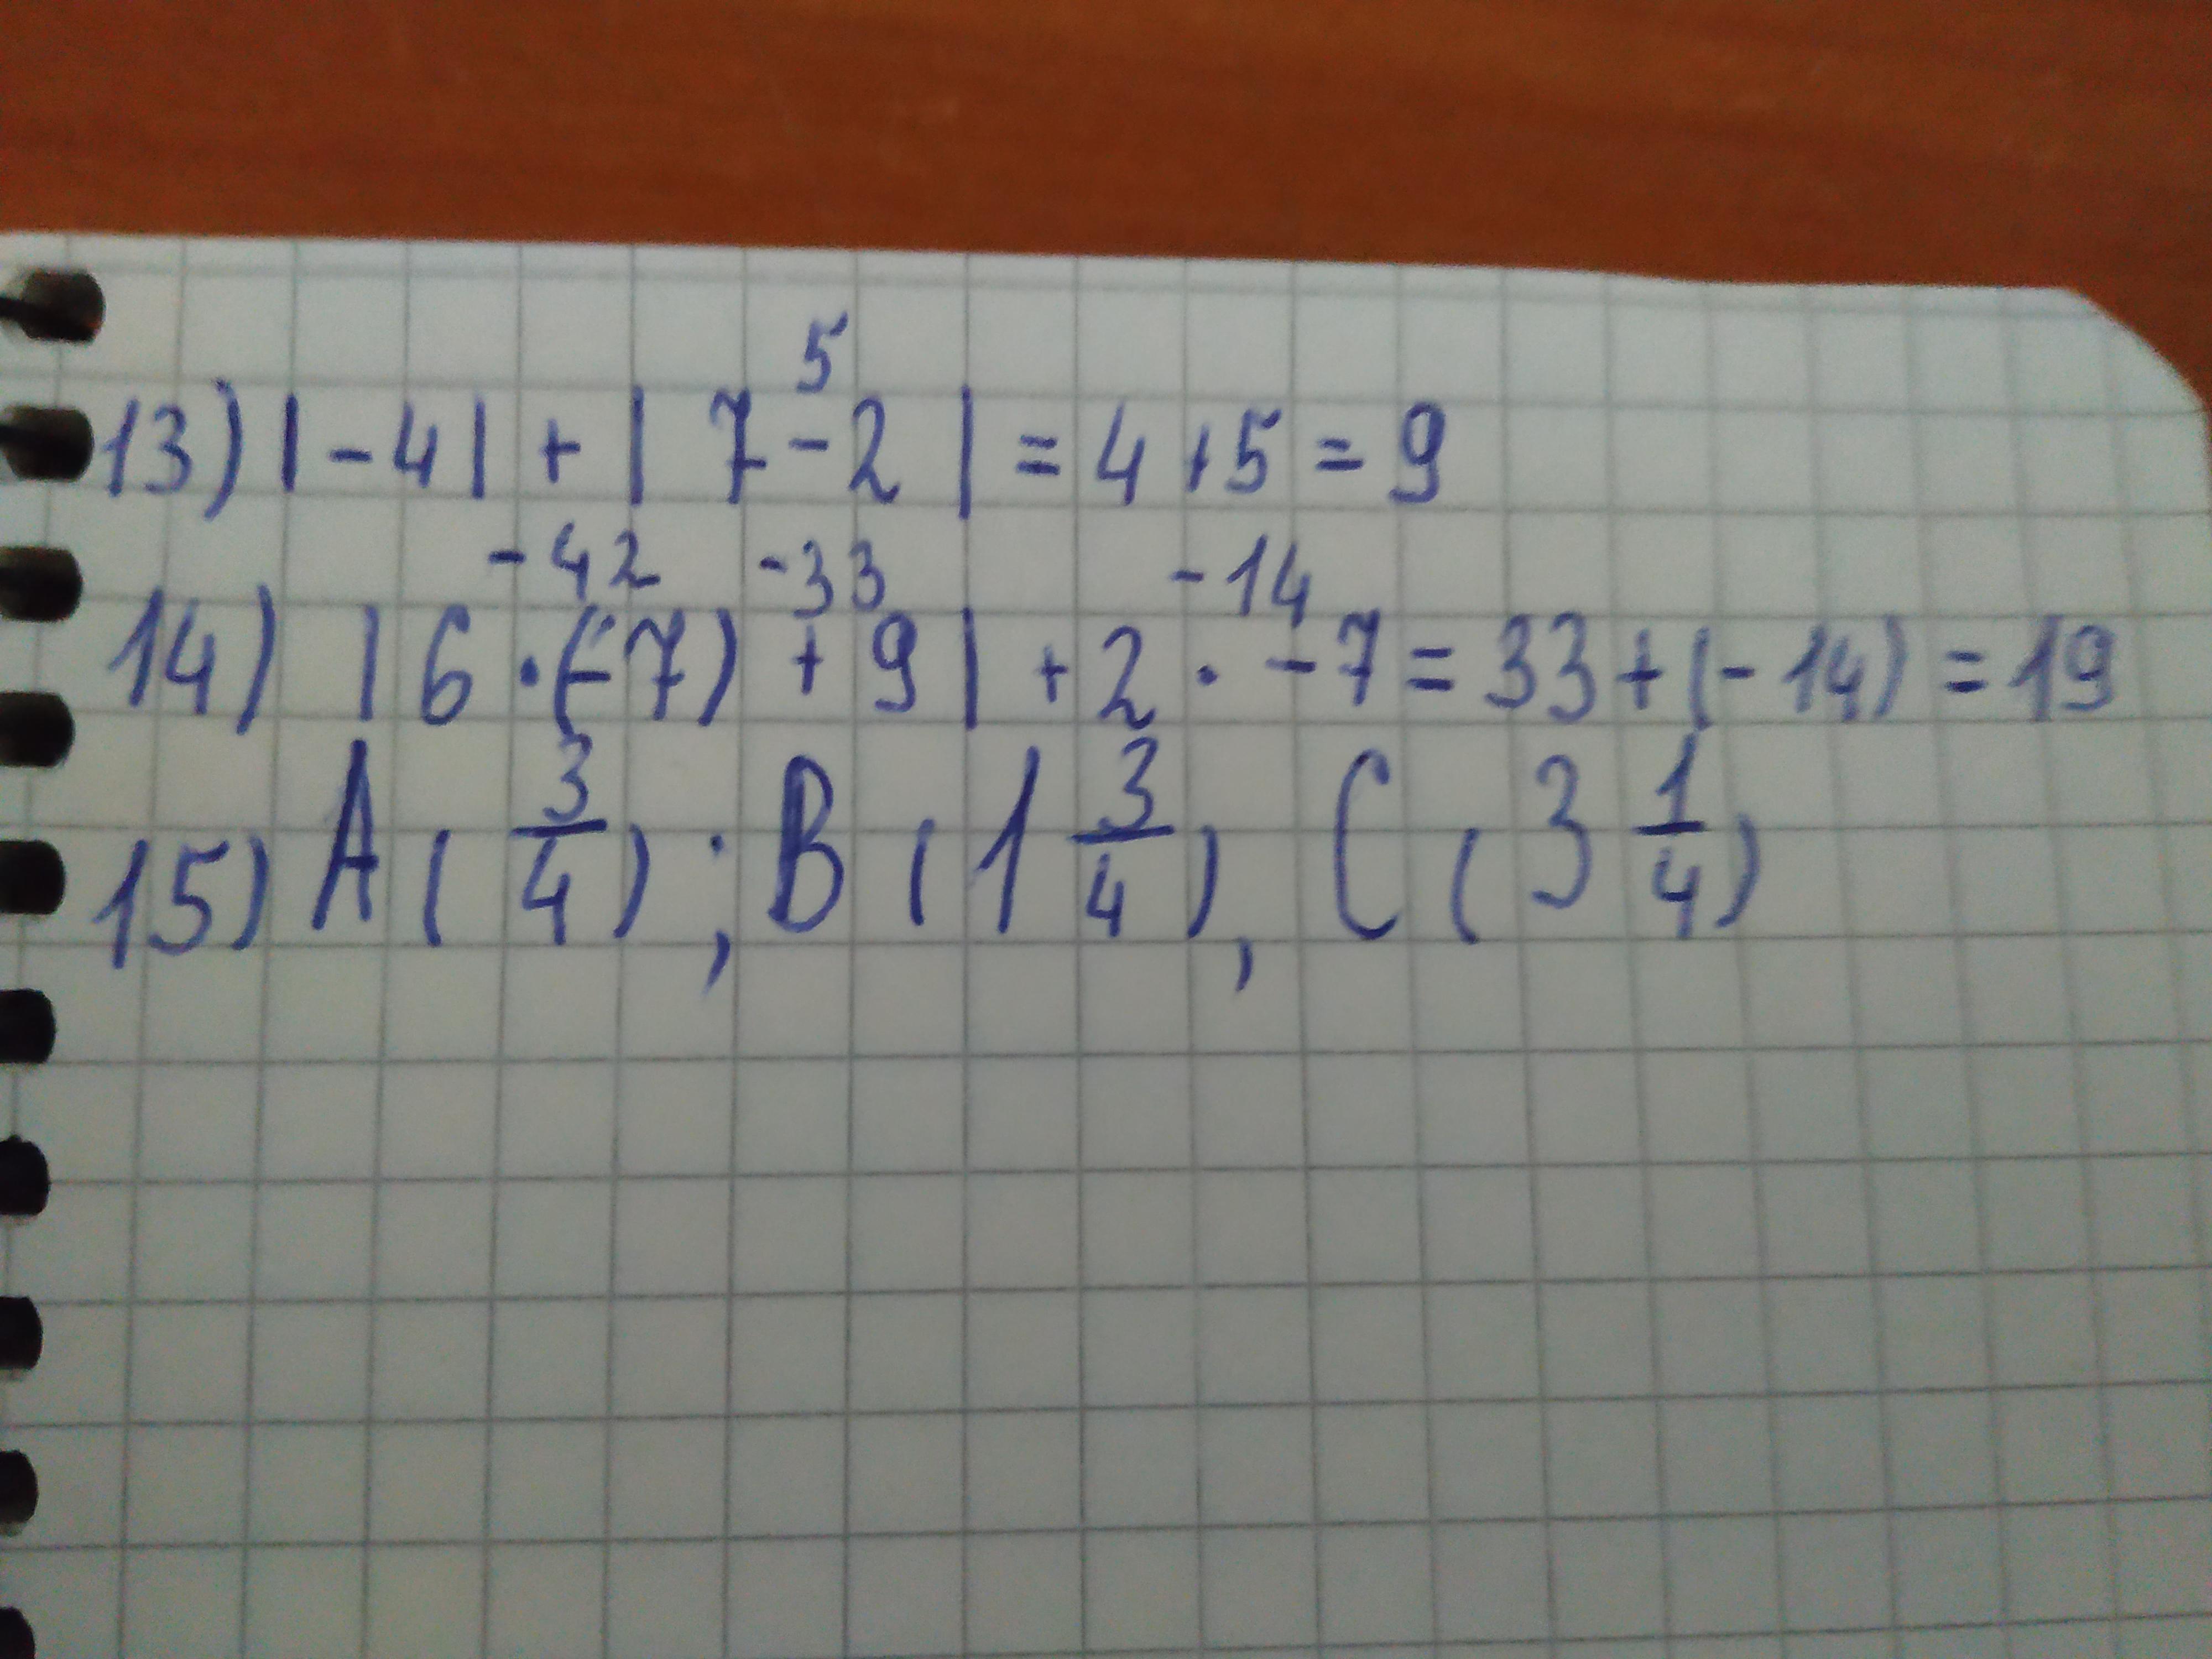 5
13) |-4| + | 7-2 | = 4+5 = 9
-42 -33 -14
14) |6·(-7) + 9| + 2 · -7 = 33 + (-14) = 19
15) A ( 3/4 ) ; B ( 1 3/4 ) , C ( 3 1/4 )